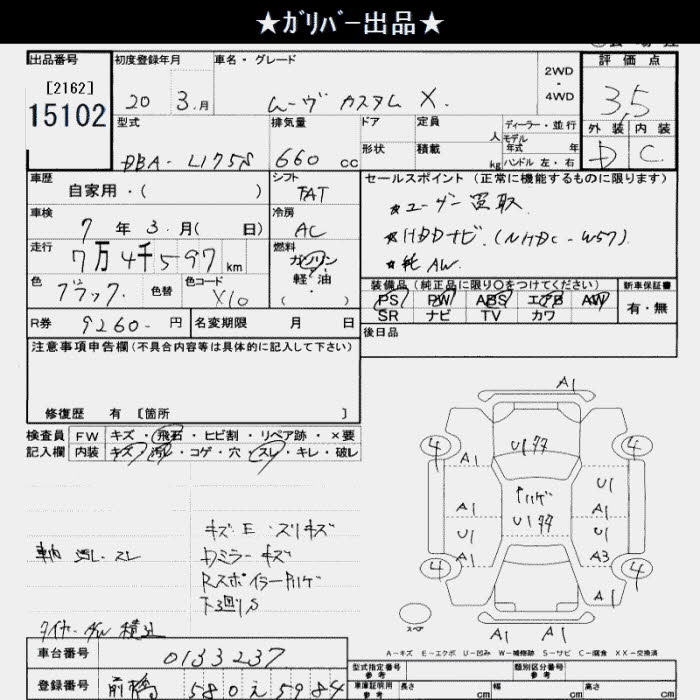 ★ガリバー出品★
出品番号 初度登録年月 車名・グレード 2WD・4WD 評価点
[2162]
15102 20 3.月 ムーヴ カスタム X. 3.5
型式 排気量 ドア 定員 人 ディーラー・並行 外装 内装
形状 積載 kg モデル年式 年 ハンドル 左・右
DBA-L175S 660 cc D C
車歴 自家用・( ) シフト FAT セールスポイント (正常に機能するものに限ります)
車検 7年 3.月( 日) 冷房 AC ★ユーザー買取
走行 7万4千597km 燃料 ガソリン 軽・油 ( ) ★HDDナビ.(NHDC-W57).
色 ブラック. 色替 色コード X10 ★純AW.
装備品 (純正品に限り○をつけてください) 新車保証書
PS PW ABS エアB AW 有・無
SR ナビ TV カワ
R券 9260- 円 名変期限 月 日 後日品
注意事項申告欄 (不具合内容等は具体的に記入して下さい)
修復歴 有 [箇所 ]
検査員 FW キズ・飛石・ヒビ割・リペア跡・×要
記入欄 内装 キズ・汚レ・コゲ・穴・スレ・キレ・破レ
A1
4 U1 4
A1
U1
A1 ハゲ A1
U1 U1 U1
A1 A3
4 4
A1
A1 A1
スペア
キズ E・スリキズ
車内 汚レ・スレ Dミラーキズ
Rスポイラーハゲ
下廻りS
タイヤ・AW 積込
A-キズ E-エクボ U-凹み W-補修跡 S-サビ C-腐食 XX-交換済
車台番号 0133237
型式指定番号 参考 類別区分番号 参考
登録番号 前橋 580 え 5984
車庫証明用 参考 長さ cm 幅 cm 高さ cm